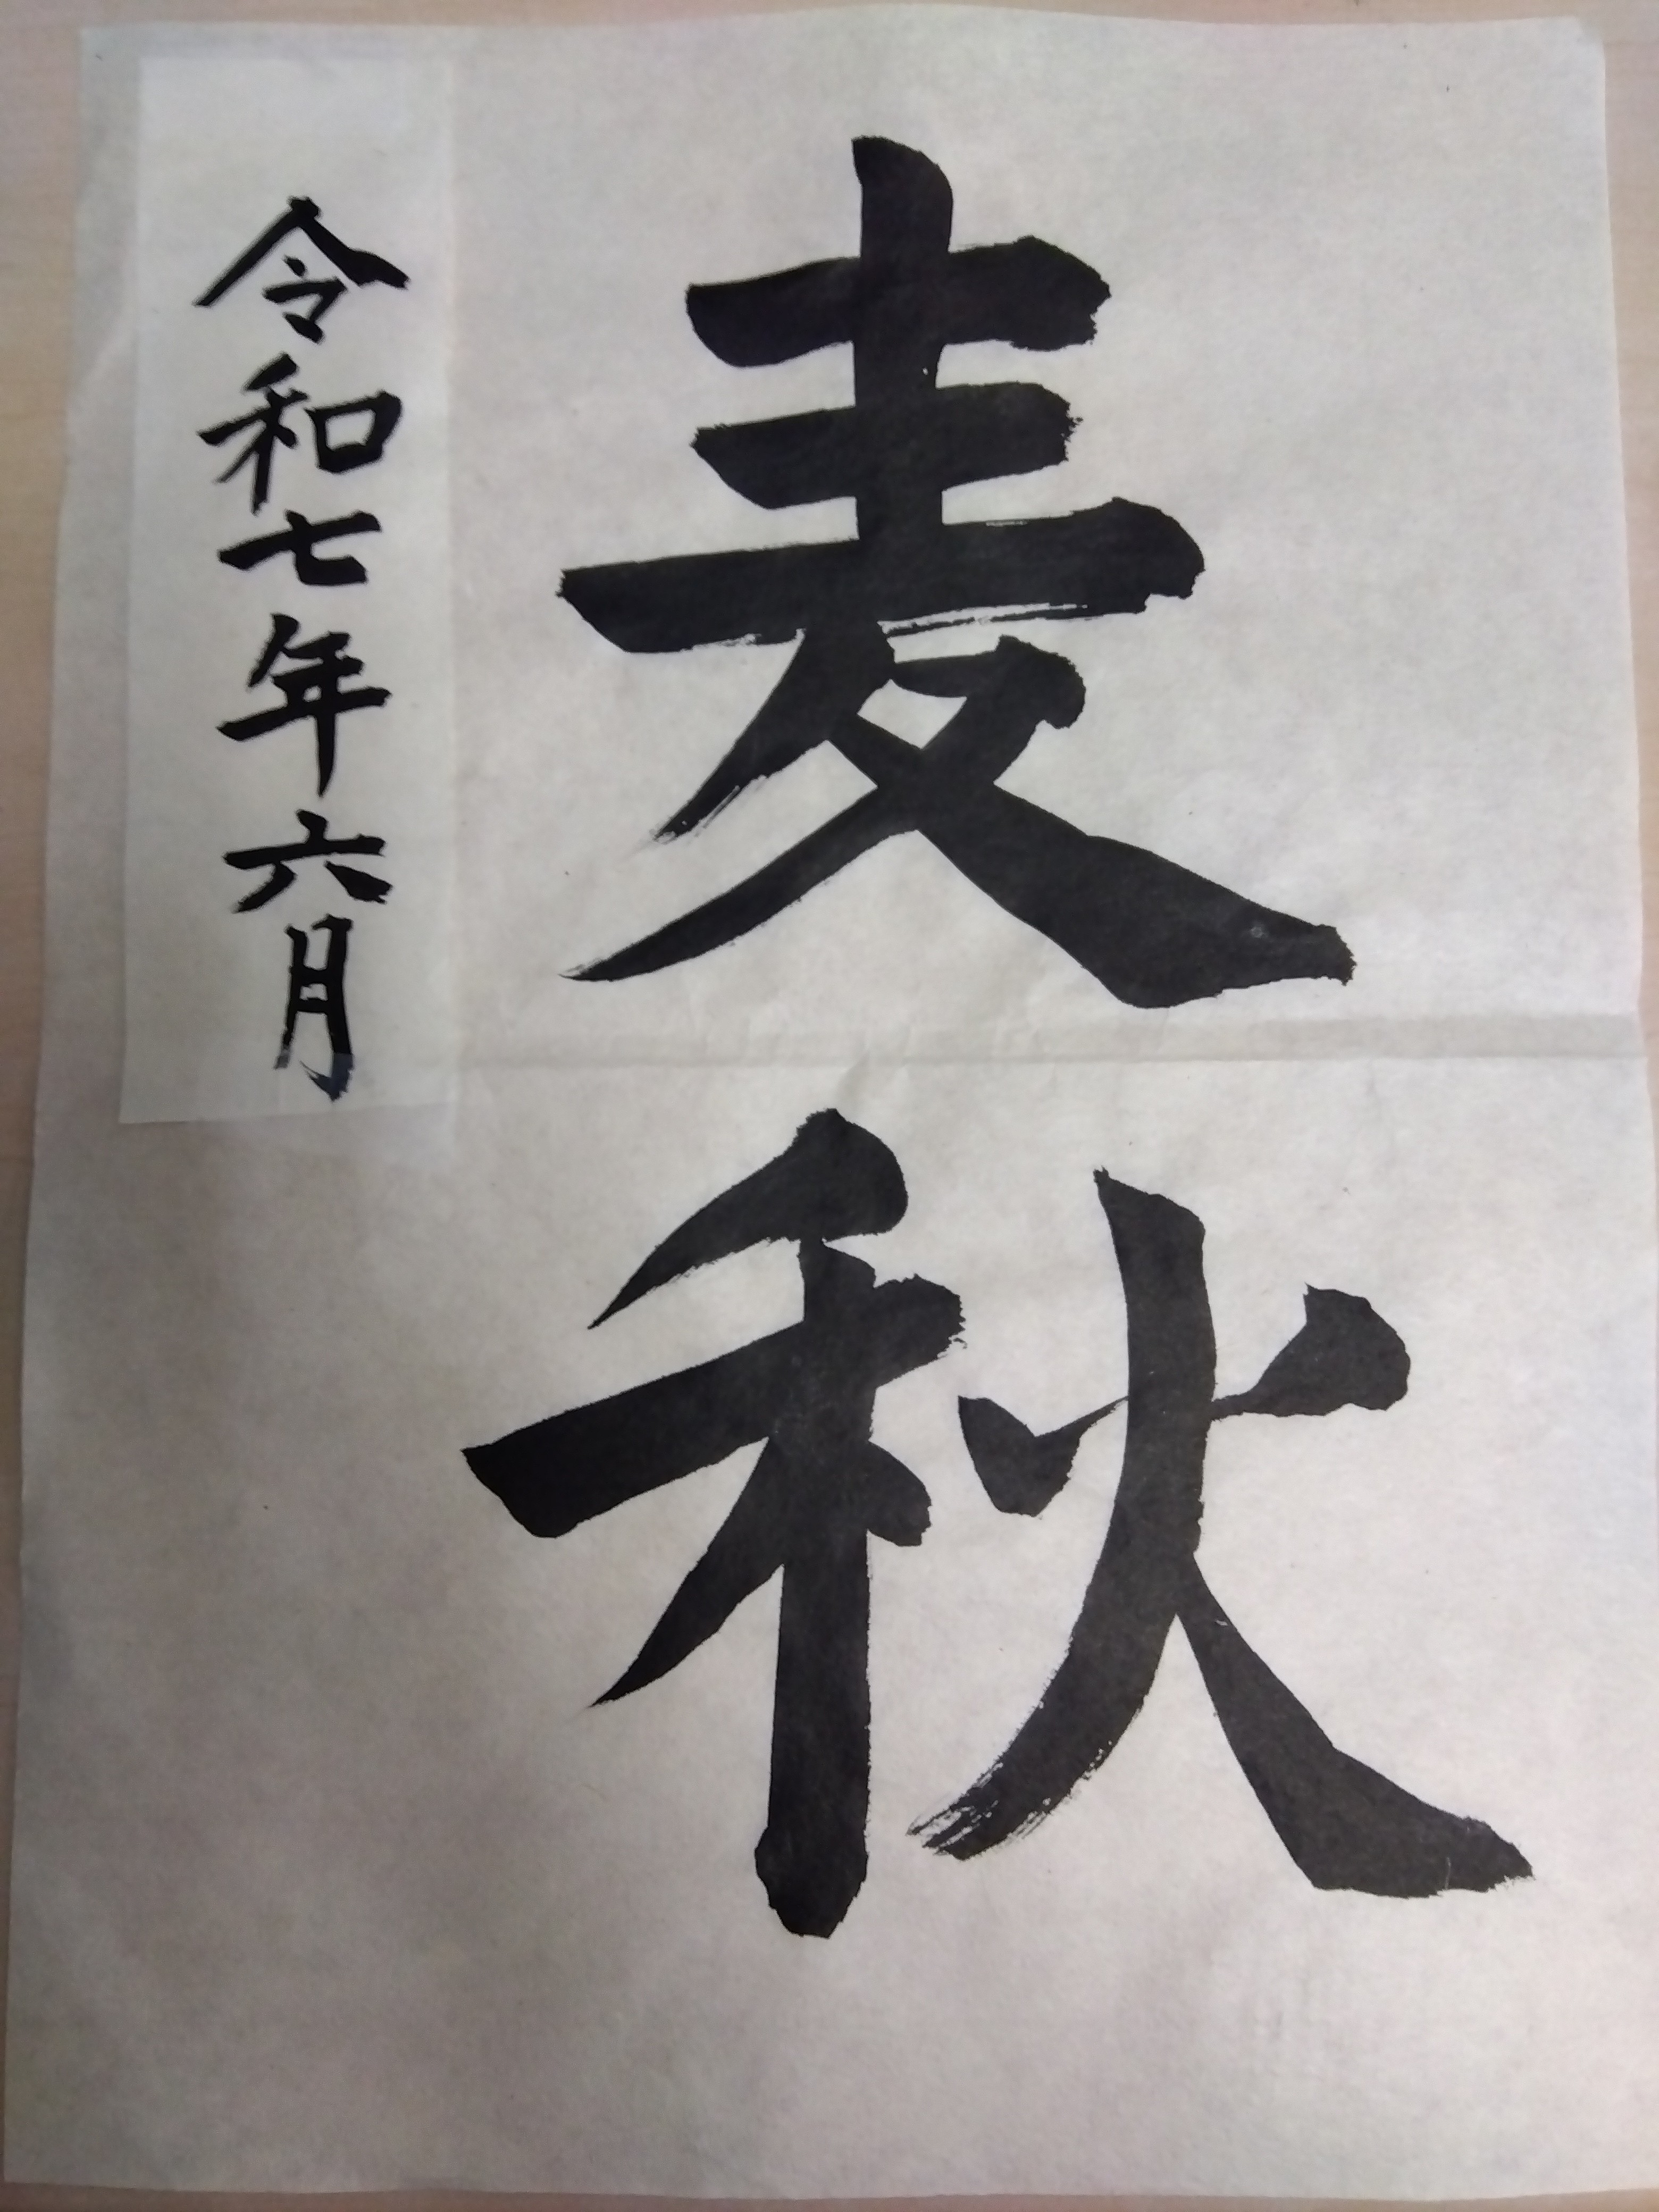 麦秋
令和七年六月